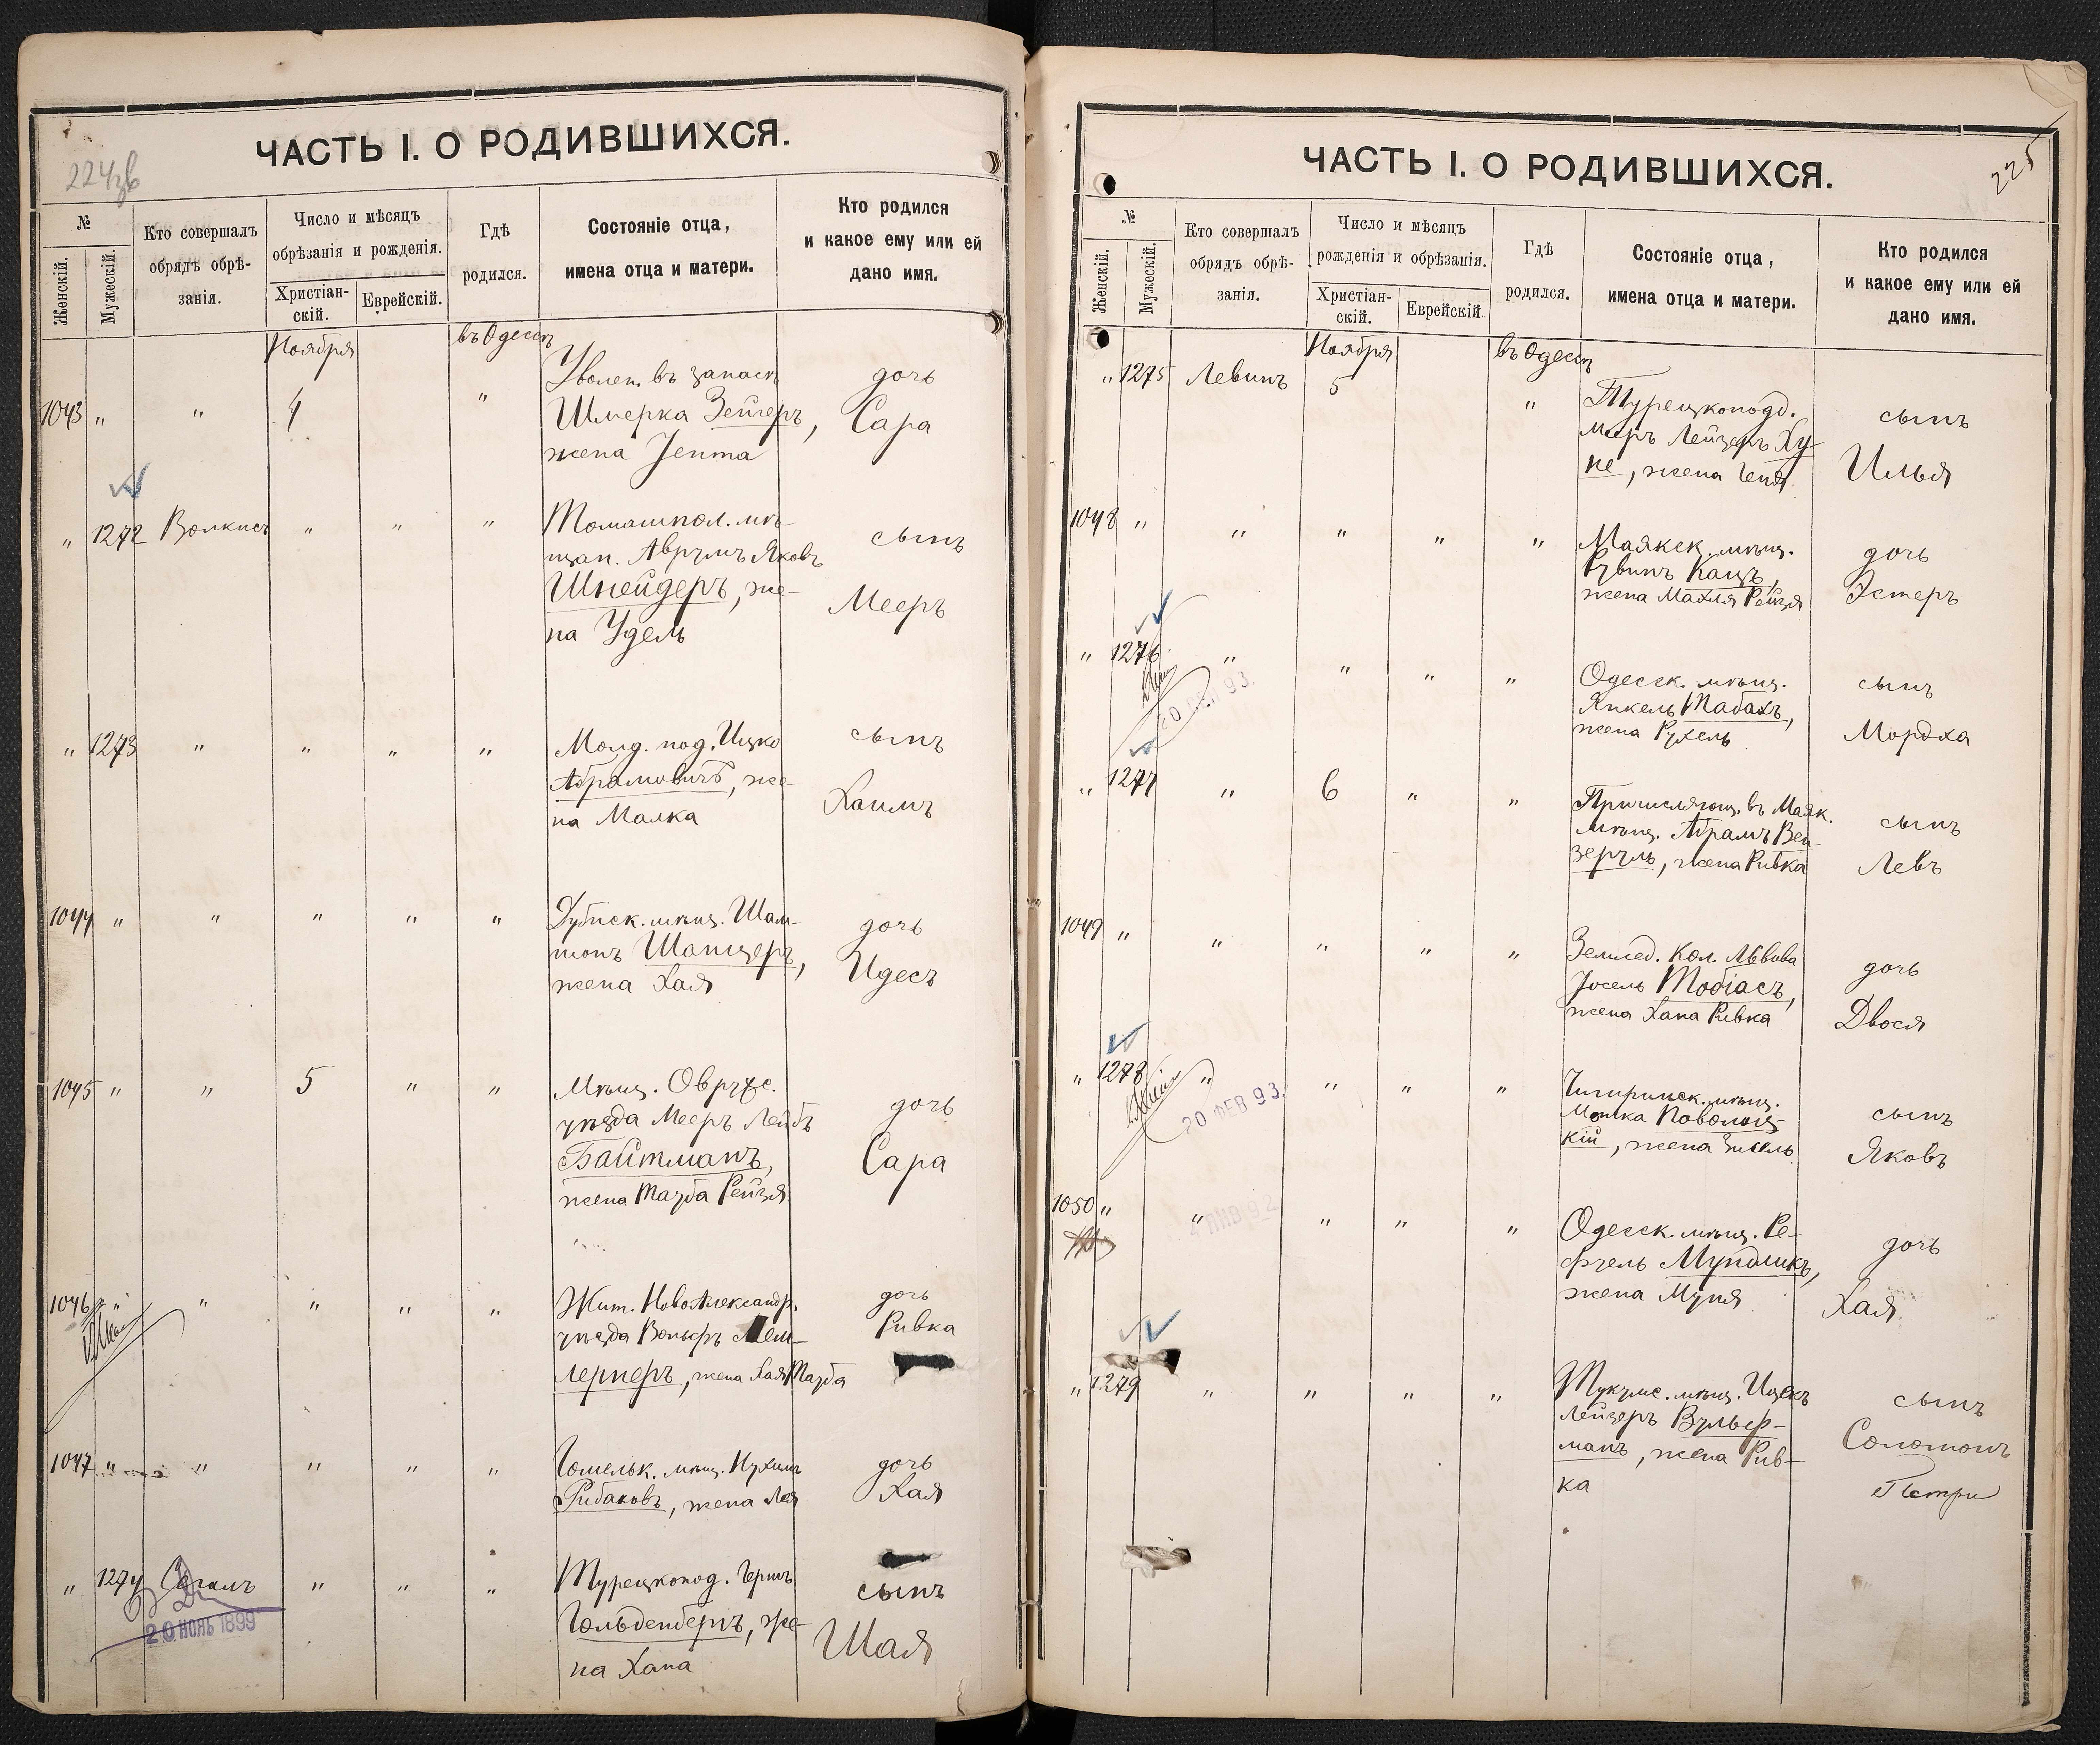 ЧАСТЬ I. О РОДИВШИХСЯ.
224зв
№
Женскій.
Мужескій.
Кто совершалъ
обрядъ обрѣ-
занія.
Число и мѣсяцъ
обрѣзанія и рожденія.
Христіан-
скій.
Еврейскій.
Гдѣ
родился.
Состояніе отца,
имена отца и матери.
Кто родился
и какое ему или ей
дано имя.
Ноября
въ Одессѣ
1043 " " 4 "
Уволен. въ запасъ
Шмерка Зейгеръ,
жена Іента
дочь
Сара
" 1272 Волкисъ " " "
Томашпол. мѣ-
щан. Аврумъ Яковъ
Шнейдеръ, же-
на Удель
сынъ
Мееръ
" 1273 " " " "
Молд. под. Ицко
Абрамовичъ, же-
на Малка
сынъ
Хаимъ
1044 " " " " "
Дубнск. мѣщ. Шам-
шонъ Шапцеръ,
жена Хая
дочь
Идесъ
1045 " " 5 " "
Мѣщ. Овручс.
уѣзда Мееръ Лейбъ
Байтманъ,
жена Тауба Рейзя
дочь
Сара
1046 " " " " "
Жит. НовоАлександр.
уѣзда Вольфъ
лернеръ, жена Хая Тауба
дочь
Ривка
1047 " " " " "
Гомельк. мѣщ. Нухимъ
Рибаковъ, жена Лея
дочь
Хая
" 1274 Сегалъ " " "
20 НОЯБ 1899
Турецкопод. Гершъ
Гольденбергъ, же-
на Хана
сынъ
Шая
ЧАСТЬ I. О РОДИВШИХСЯ.
225
№
Женскій.
Мужескій.
Кто совершалъ
обрядъ обрѣ-
занія.
Число и мѣсяцъ
рожденія и обрѣзанія.
Христіан-
скій.
Еврейскій.
Гдѣ
родился.
Состояніе отца,
имена отца и матери.
Кто родился
и какое ему или ей
дано имя.
Ноября
въ Одессѣ
" 1275 Левинъ 5 "
Турецкопод.
Мееръ Лейзеръ Ху-
не, жена Геня
сынъ
Илья
1048 " " " " "
Маякск. мѣщ.
Рувинъ Кацъ,
жена Махля Рейзя
дочь
Эстеръ
" 1276 " " " "
20 ФЕВ 93.
Одесск. мѣщ.
Янкель Табахъ,
жена Рухель
сынъ
Мордха
" 1277 " 6 " "
Причисляющ. въ Маяк.
мѣщ. Абрамъ Вей-
зеруль, жена Ривка
сынъ
Левъ
1049 " " " " "
Землед. Кол. Львова
Іосель Тобіасъ,
жена Хана Ривка
дочь
Двося
" 1278 " " " "
20 ФЕВ 93.
Чигиринск. мѣщ.
Мошка Поволоц-
кій, жена Зисель
сынъ
Яковъ
1050 " " " " "
ЯНВ 92
Одесск. мѣщ. Ре-
фуель Мундликъ,
жена Муня
дочь
Хая
" 1279 " " " "
Тукумс. мѣщ. Ицекъ
Лейзеръ Вульф-
манъ, жена Рив-
ка
сынъ
Соломонъ